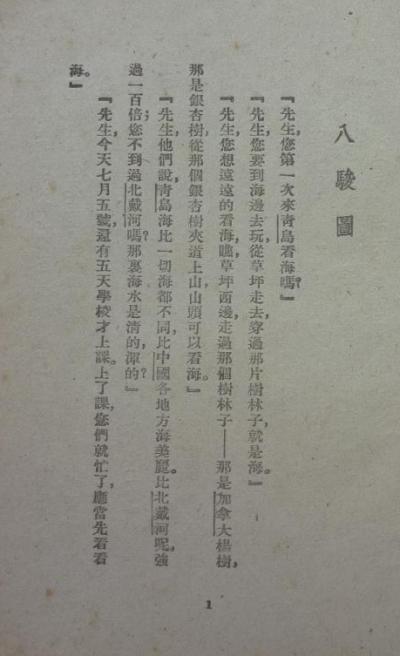 八駿圖
『先生，您第一次來青島看海嗎？』
『先生，您要到海邊去玩，從草坪走去，穿過那片樹林子，就是海。』
『先生，您想遠遠的看海，瞧，草坪西邊，走過那個樹林子——那是加拿大楊樹，
那是銀杏樹，從那個銀杏樹夾道上山，山頭可以看海。』
『先生，他們說，青島海比一切海都不同，比中國各地方海美麗。比北戴河呢，強
過一百倍；您不到過北戴河嗎？那裏海水是清的，渾的？』
『先生，今天七月五號，還有五天學校才上課。上了課，您們就忙了，應當先看看
海。』
1